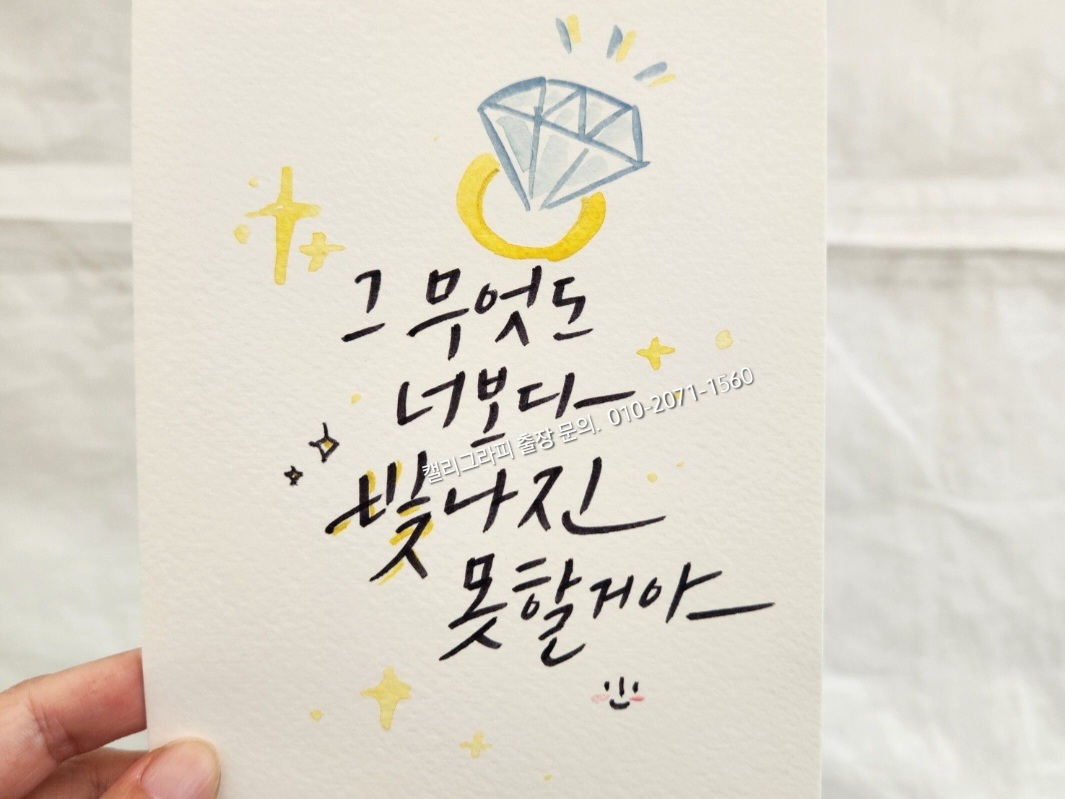 그 무엇도
너보다
캘리그라피 출장 문의. 010-2071-1560
빛나진
못할거야